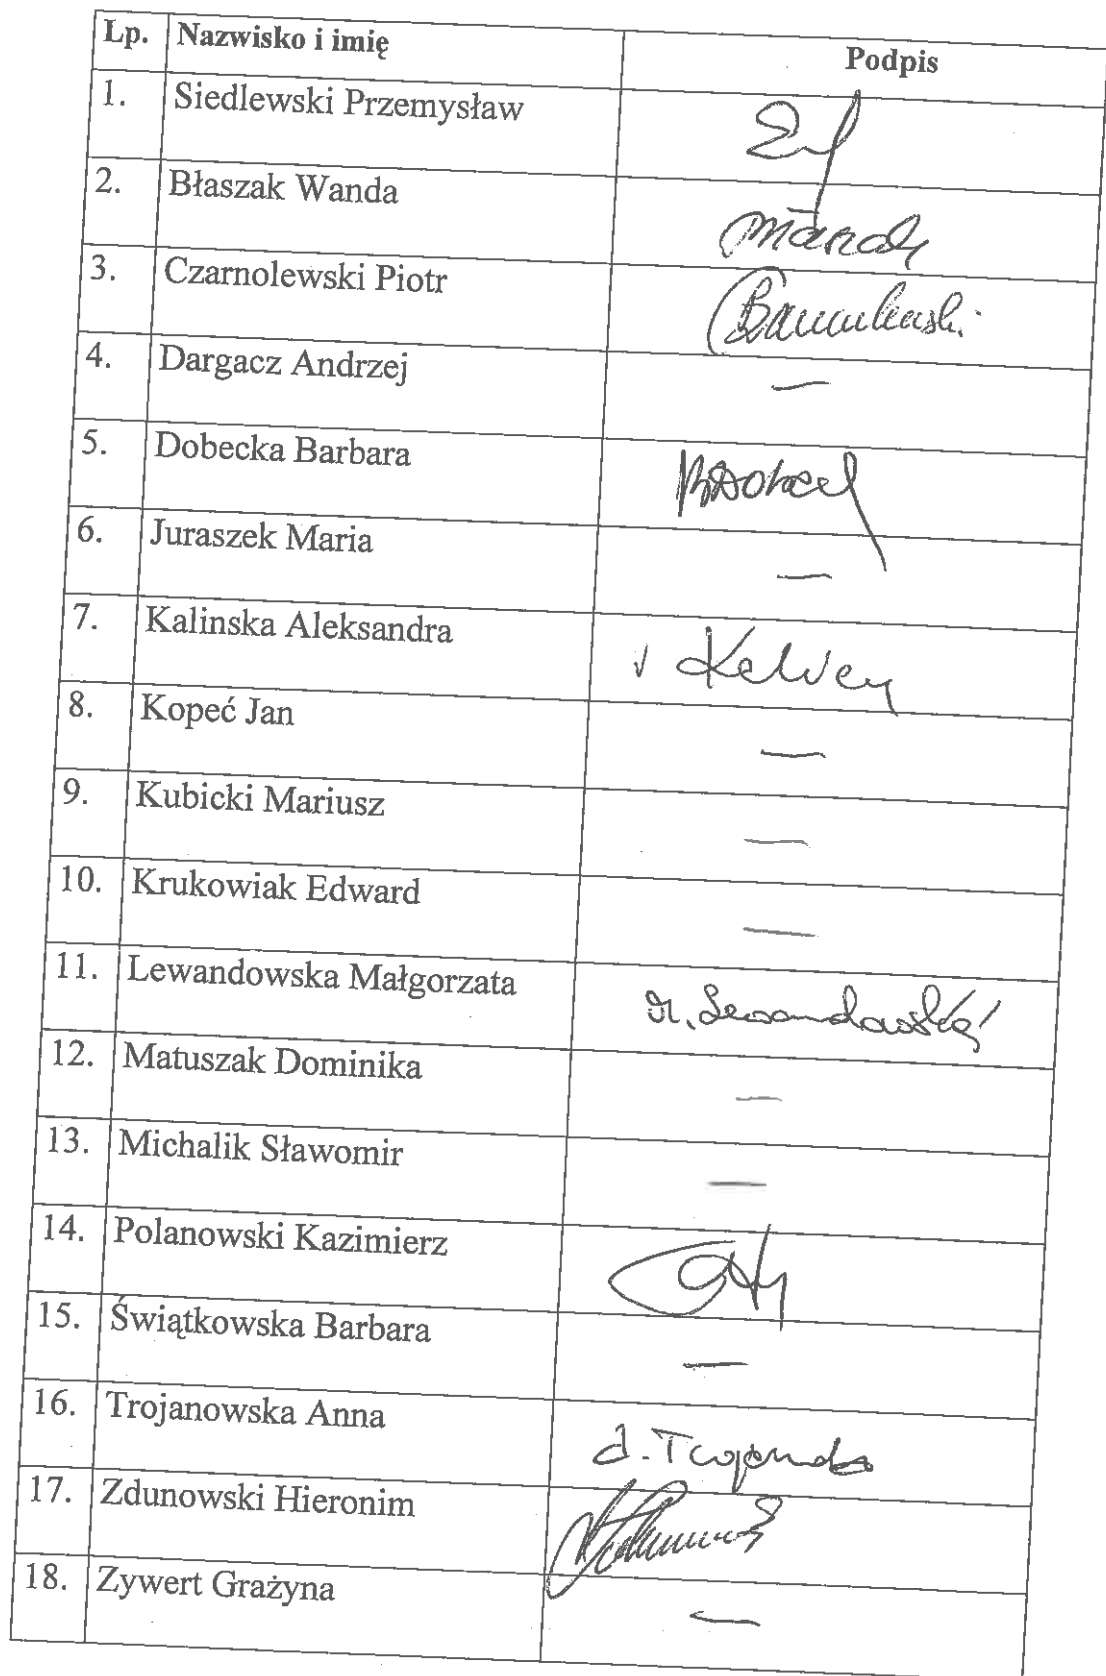 Lp. Nazwisko i imię Podpis
1. Siedlewski Przemysław
2. Błaszak Wanda
3. Czarnolewski Piotr
4. Dargacz Andrzej —
5. Dobecka Barbara
6. Juraszek Maria —
7. Kalinska Aleksandra
8. Kopeć Jan —
9. Kubicki Mariusz —
10. Krukowiak Edward —
11. Lewandowska Małgorzata M. Lewandowska
12. Matuszak Dominika —
13. Michalik Sławomir —
14. Polanowski Kazimierz
15. Świątkowska Barbara —
16. Trojanowska Anna
17. Zdunowski Hieronim
18. Zywert Grażyna —